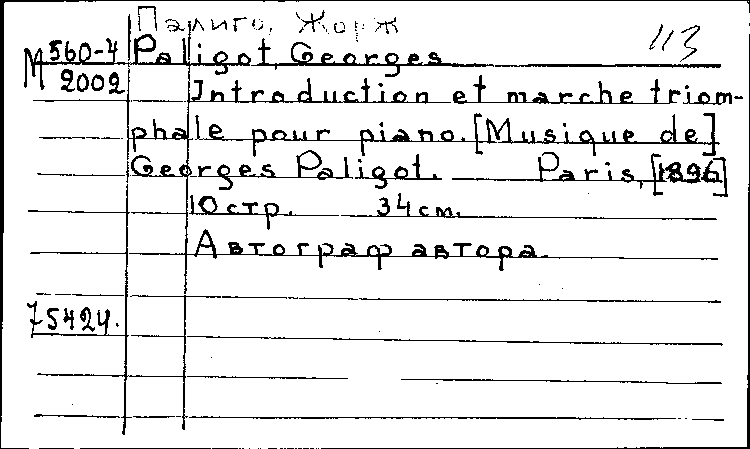 Палиго, Жорж
113
М 560-4 Paligot, Georges
2002 Introduction et marche triom-
phale pour piano. [Musique de]
Georges Paligot. — Paris, [1896]
10 стр. 34 см.
Автограф автора.
75424.